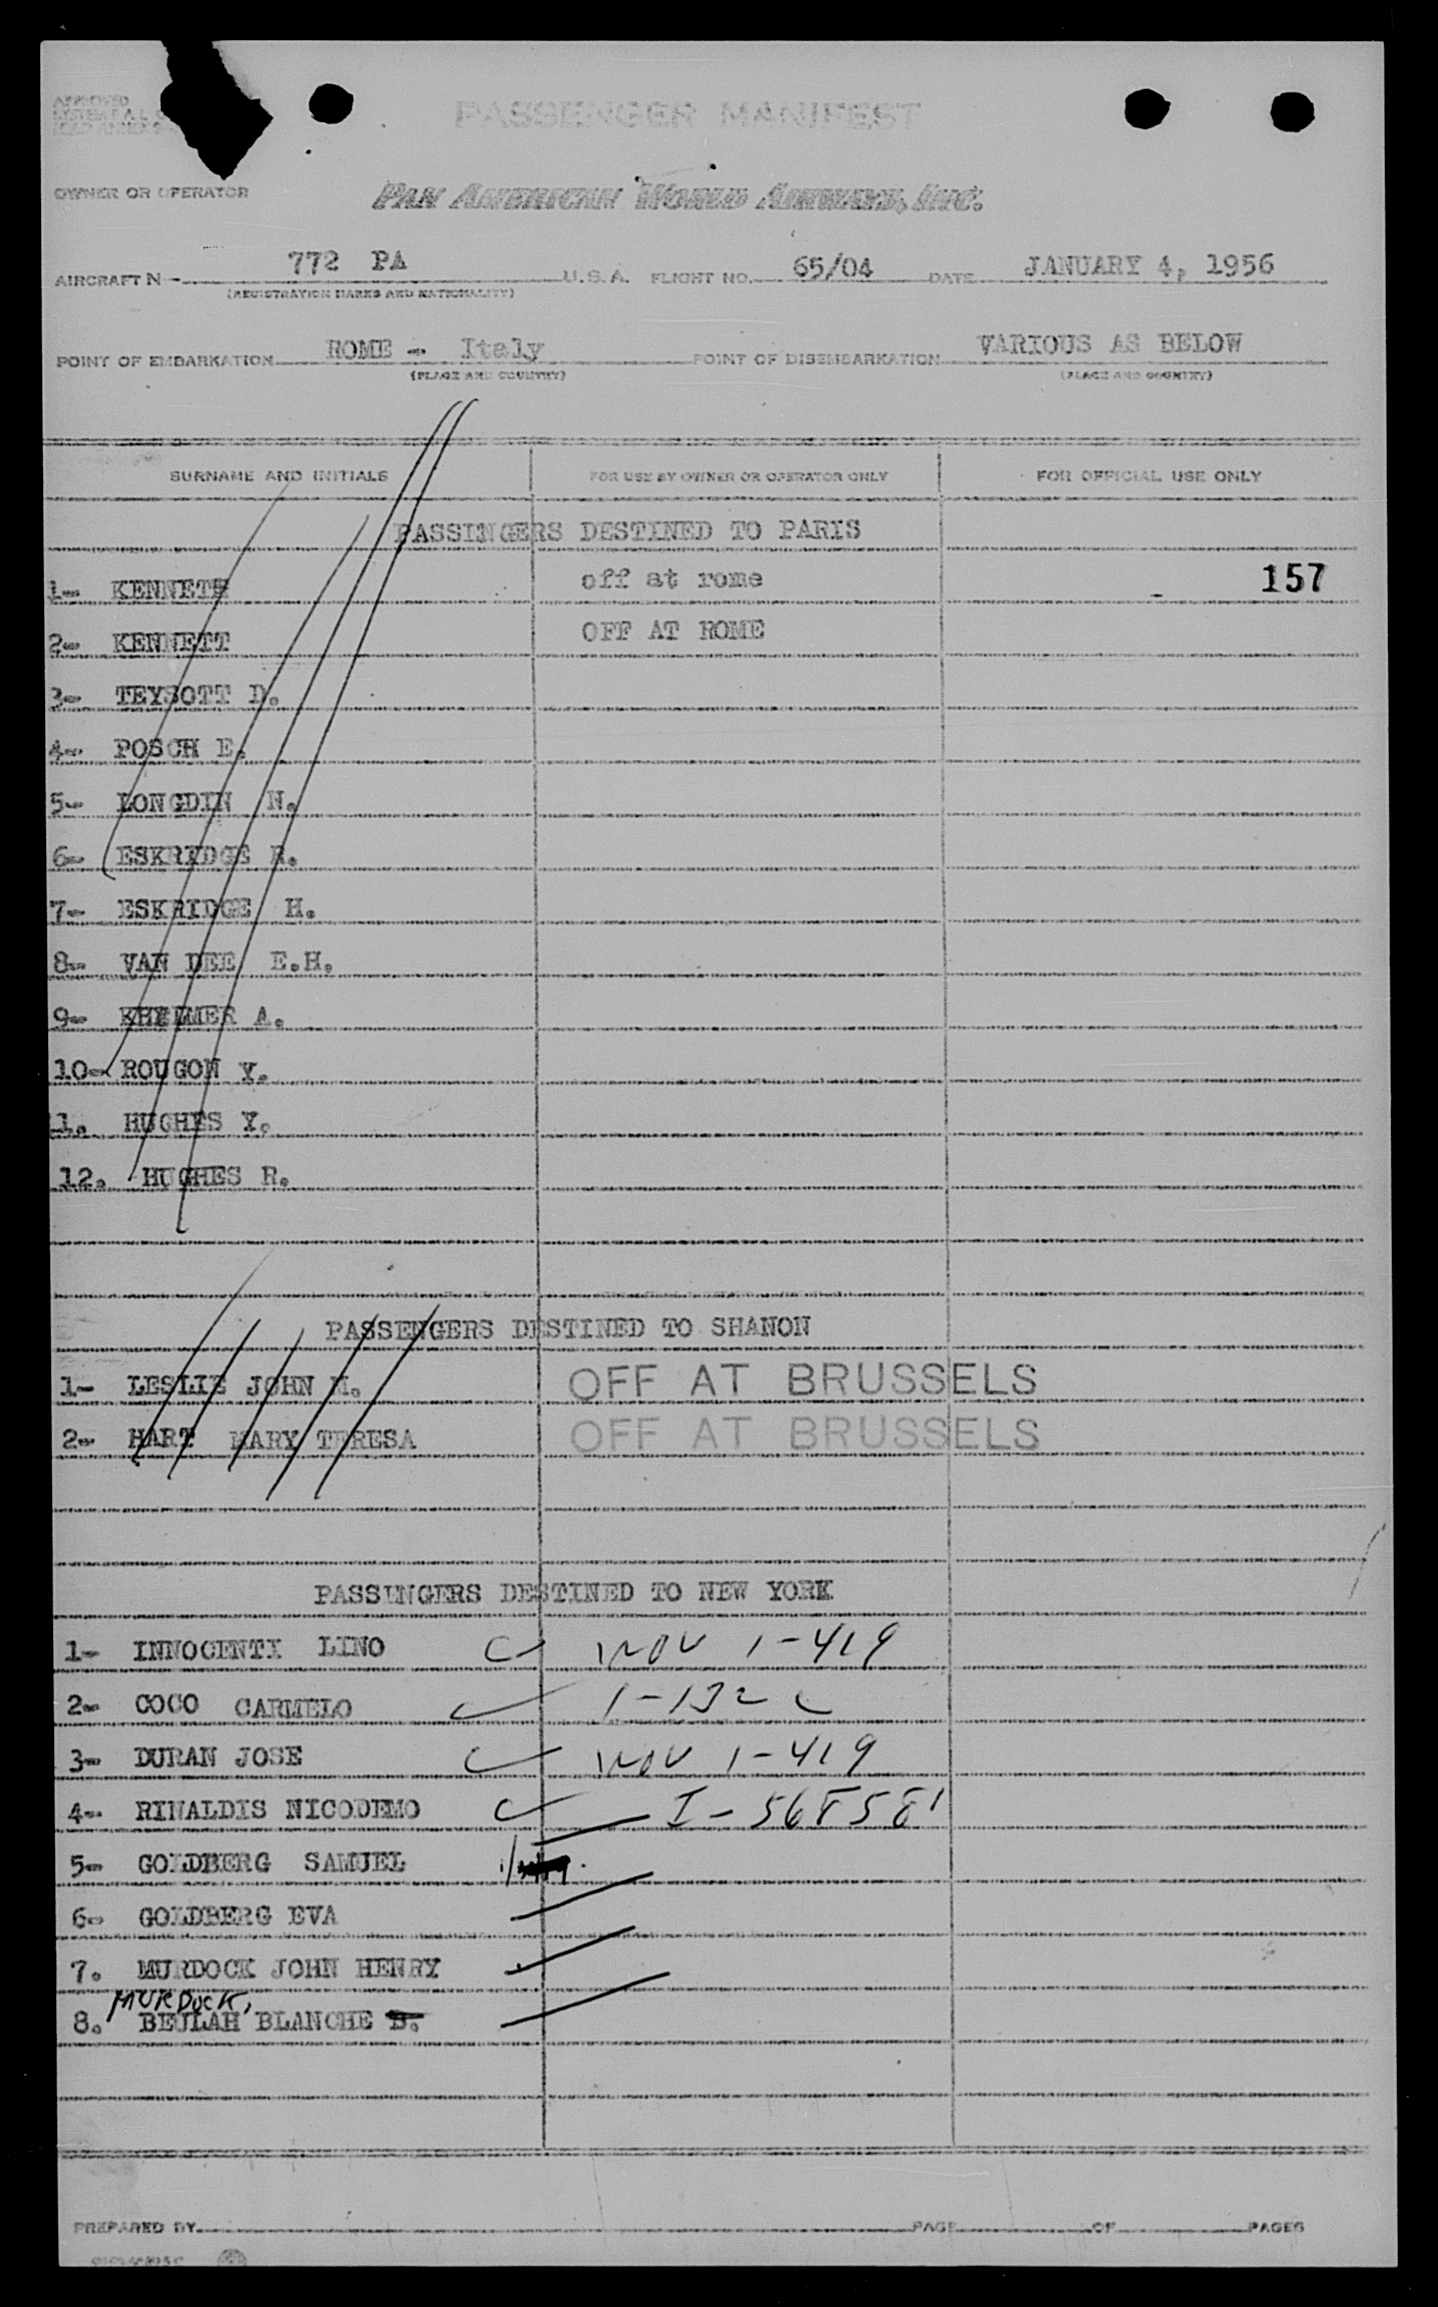 APPROVED
PASSENGER MANIFEST
OWNER OR OPERATOR PAN AMERICAN WORLD AIRWAYS, INC.
AIRCRAFT N- 772 PA U.S.A. FLIGHT NO. 65/04 DATE JANUARY 4, 1956
(REGISTRATION MARKS AND NATIONALITY)
POINT OF EMBARKATION ROME - Italy POINT OF DISEMBARKATION VARIOUS AS BELOW
(PLACE AND COUNTRY) (PLACE AND COUNTRY)
SURNAME AND INITIALS FOR USE BY OWNER OR OPERATOR ONLY FOR OFFICIAL USE ONLY
PASSINGERS DESTINED TO PARIS
1- KENNETT off at rome 157
2- KENNETT OFF AT ROME
3- TEYSOTT D.
4- POSCH E.
5- LONGDIN N.
6- ESKRIDGE R.
7- ESKRIDGE H.
8- VAN DEE E.H.
9- A.
10- ROUGON Y.
11. HUGHES Y.
12. HUGHES R.
PASSENGERS DESTINED TO SHANON
1- LESLIE JOHN M. OFF AT BRUSSELS
2- HART MARY TERESA OFF AT BRUSSELS
PASSINGERS DESTINED TO NEW YORK
1- INNOCENTI LINO NOV 1-419
2- COCO CARMELO 1-132
3- DURAN JOSE NOV 1-419
4- RINALDIS NICODEMO I-568581
5- GOLDBERG SAMUEL
6- GOLDBERG EVA
7. MURDOCK JOHN HENRY
MURDOCK,
8. BEULAH BLANCHE B.
PREPARED BY PAGE OF PAGES